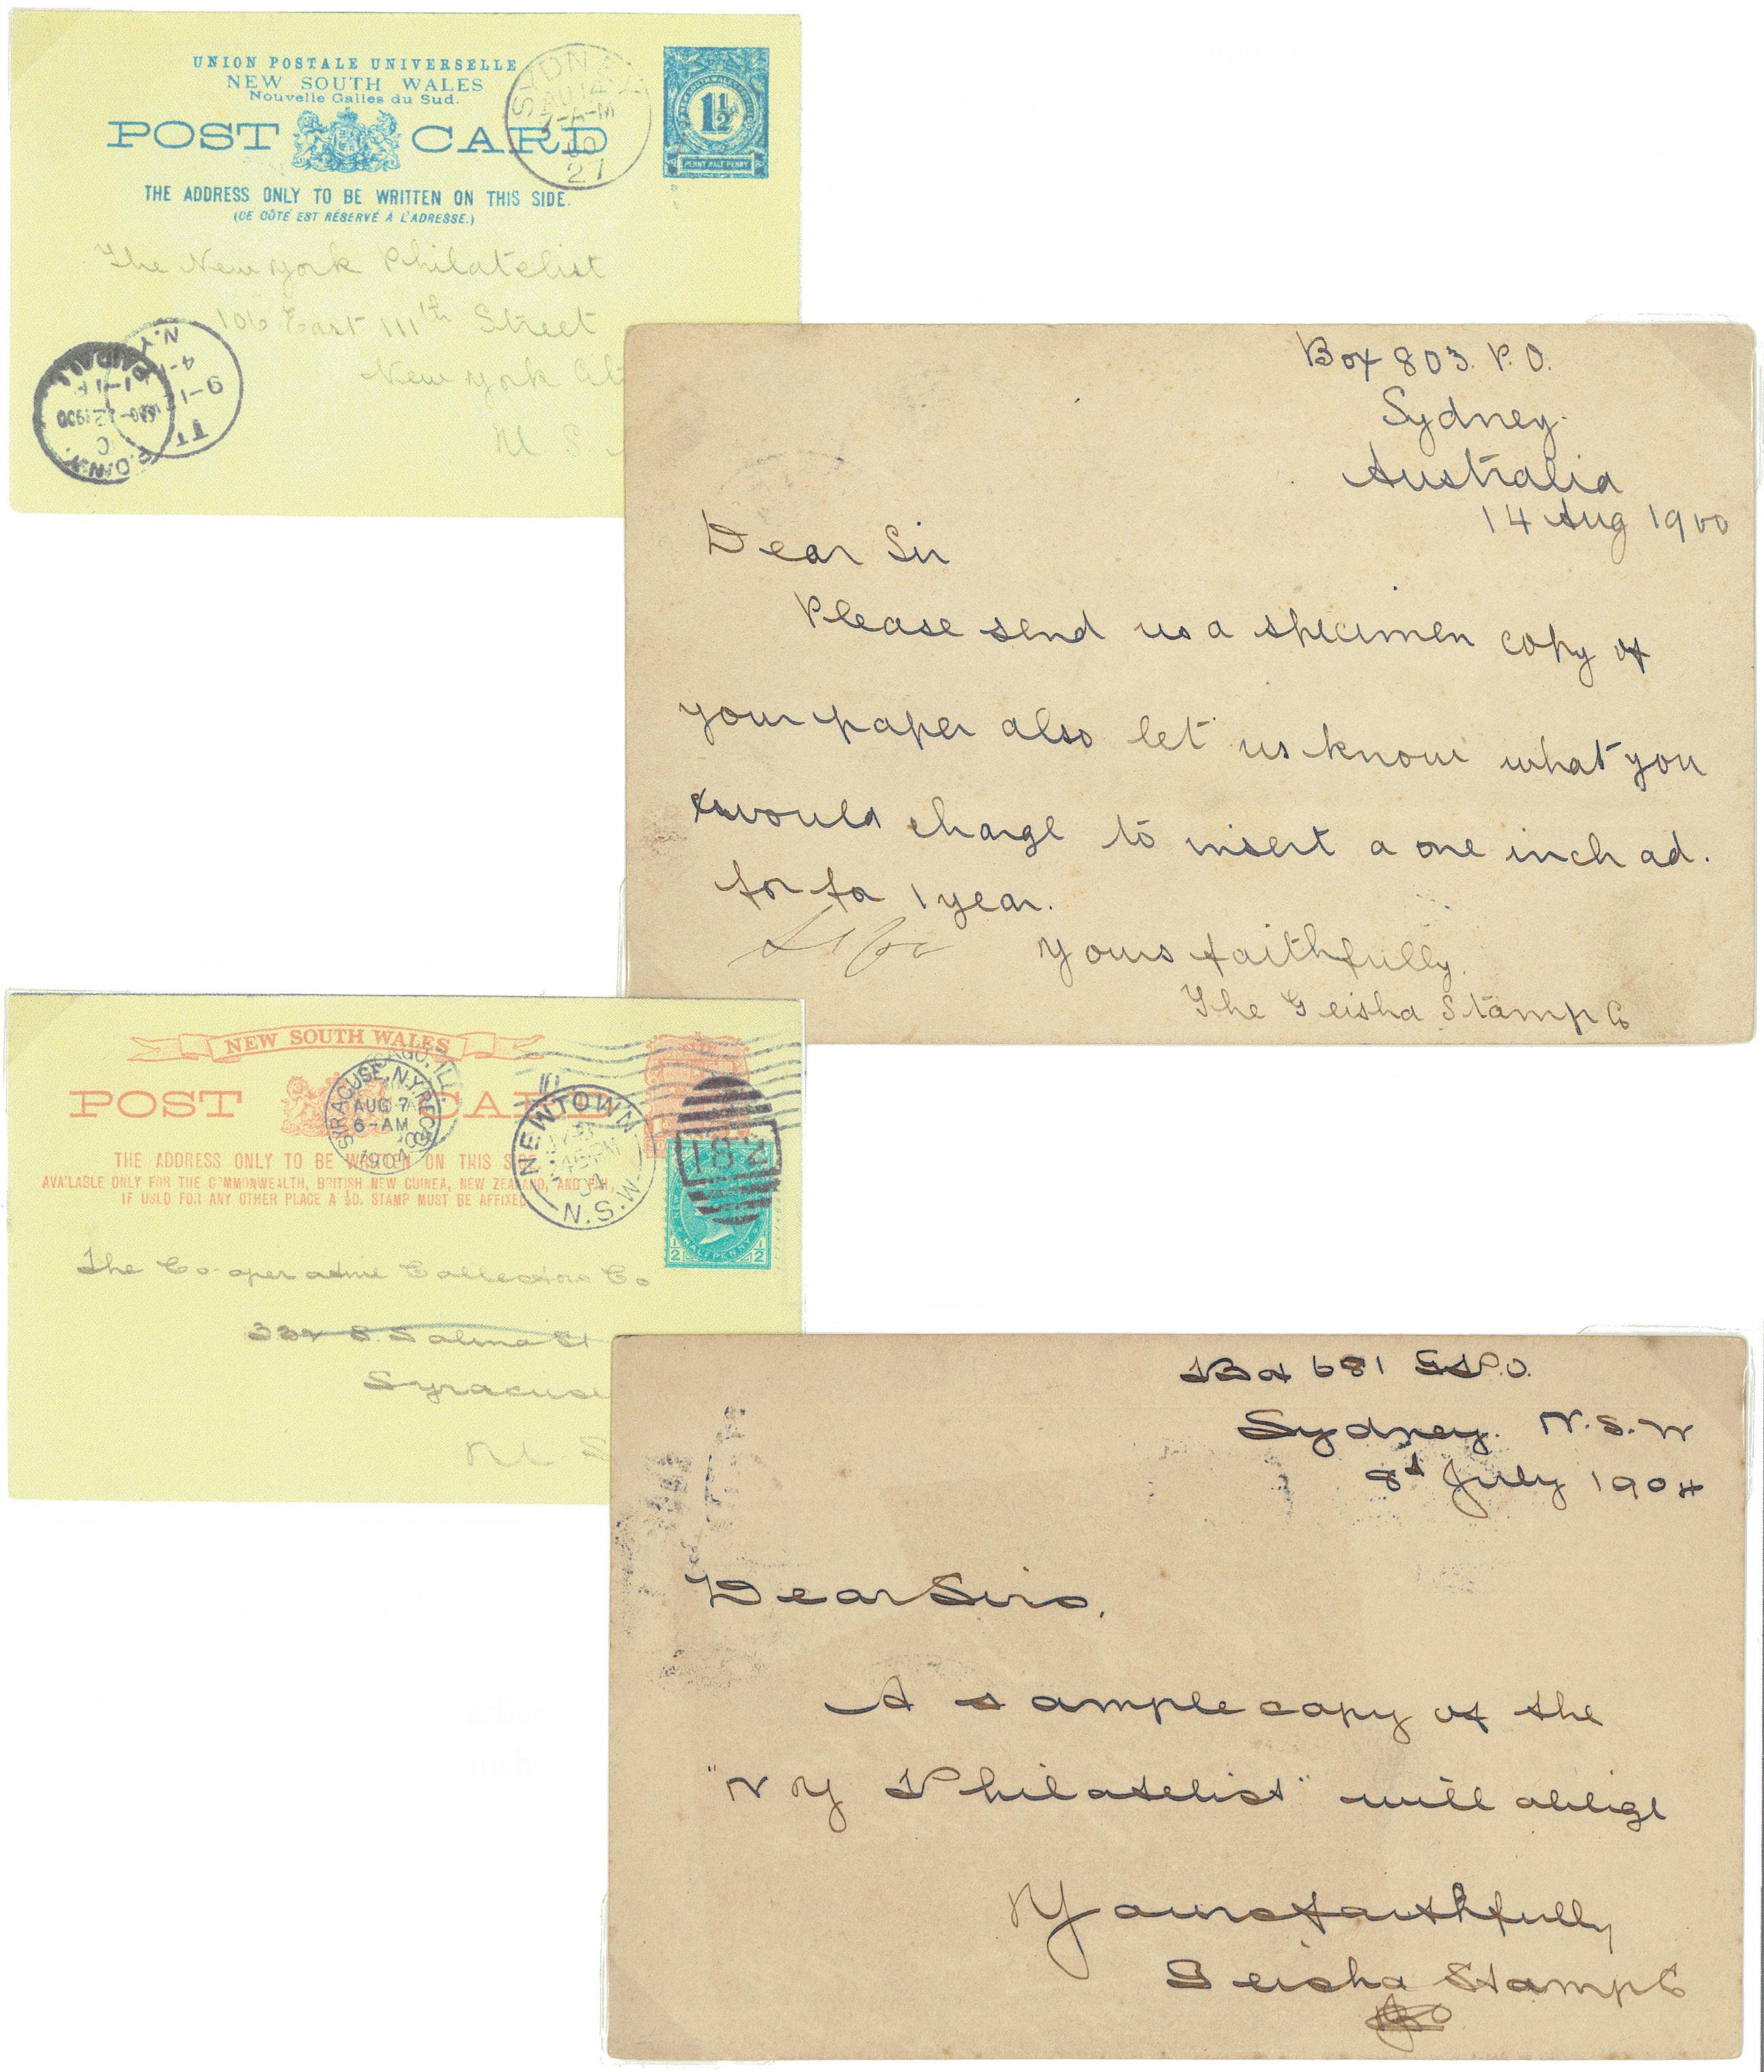 UNION POSTALE UNIVERSELLE
NEW SOUTH WALES
Nouvelle Galles du Sud.
POST CARD
THE ADDRESS ONLY TO BE WRITTEN ON THIS SIDE.
(CE CÔTÉ EST RÉSERVÉ À L'ADRESSE.)
SYDNEY
AU 14
7-A-M
00
27
1½
PENNY HALF PENNY
The New York Philatelist
106 East 111th Street
New York Cit
U S
N.Y.
4-1
9-1
TT
PAID ALL
1900
C
P.O.N.Y.
Box 803. P.O.
Sydney.
Australia
14 Aug 1900
Dear Sir
Please send us a specimen copy of
your paper also let us know what you
would charge to insert a one inch ad.
for fo 1 year.
Yours faithfully.
The Geisha Stamp Co
NEW SOUTH WALES
POST CARD
THE ADDRESS ONLY TO BE WRITTEN ON THIS SIDE
AVAILABLE ONLY FOR THE COMMONWEALTH, BRITISH NEW GUINEA, NEW ZEALAND, AND FIJI,
IF USED FOR ANY OTHER PLACE A ½D. STAMP MUST BE AFFIXED
SYRACUSE, N.Y. REC'D
AUG 7
6-AM
1904
NEWTOWN
45 PM
04
N.S.W
182
HALFPENNY
1/2 1/2
The Co-operative Collectors Co
334 S. Salina St
Syracuse
U. S
Box 681 G.P.O.
Sydney. N.S.W
8th July 1904
Dear Sirs,
A sample copy of the
"N Y Philatelist" will oblige
Yours faithfully
Geisha Stamp Co